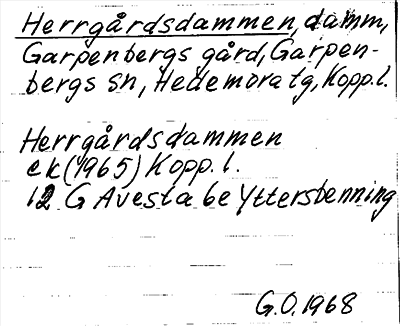 Herrgårdsdammen, damm,
Garpenbergs gård, Garpen-
bergs sn, Hedemora tg, Kopp.l.
Herrgårdsdammen
ek (1965) Kopp. l.
12 G Avesta 6e Yttersbenning
G.O. 1968